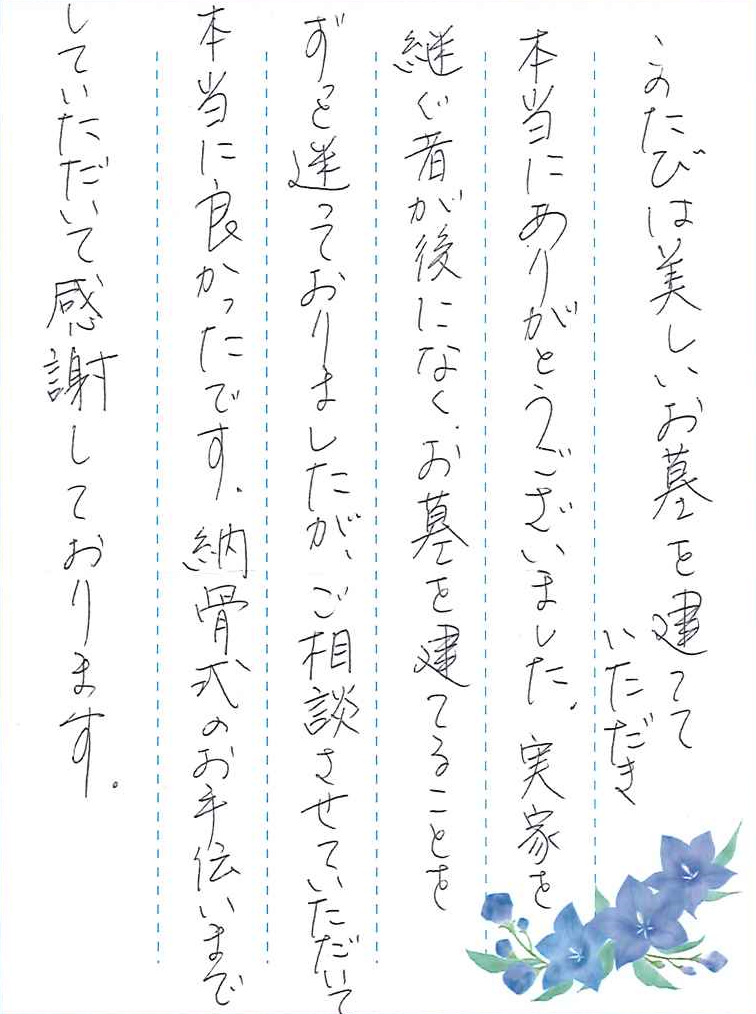 このたびは美しいお墓を建てて
いただき
本当にありがとうございました。実家を
継ぐ者が後になく、お墓を建てることを
ずっと迷っておりましたが、ご相談させていただいて
本当に良かったです。納骨式のお手伝いまで
していただいて感謝しております。